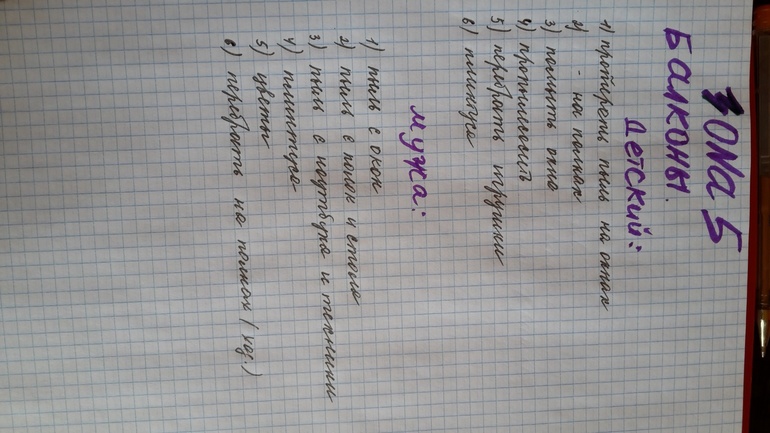 ЗОНА 5
Балконы.
Детский:
1) протереть пыль на окнах
2) - на полках
3) помыть окна
4) пропылесосить
5) перебрать игрушки
6) плинтуса
Мужа:
1) пыль с окон
2) пыль с полок и стола
3) пыль с ноутбука и техники
4) плинтуса
5) цветы
6) перебрать на полках (ход.)